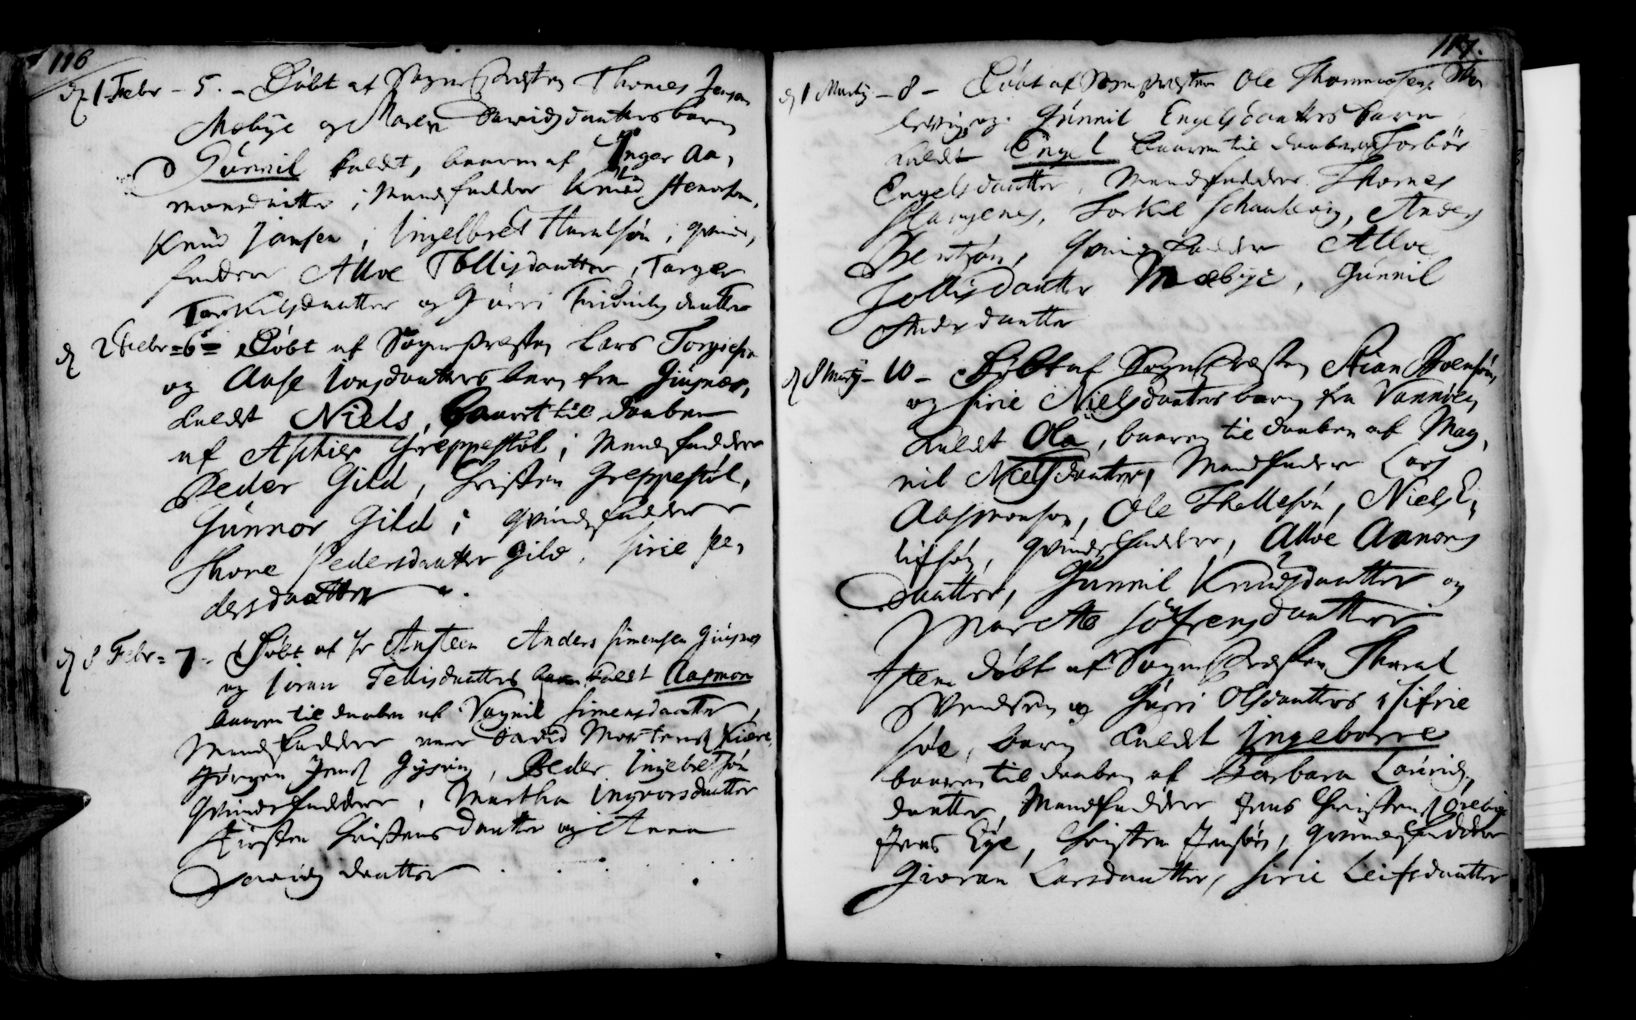 116
d 1 Febr - 5. - Döbt af Sogne Presten Thomes Jensen
Mebye og Maren Davidsdaatters barn
Gunnil kaldt, baaren af Inger Aa,
monsdatter; Mandfaddere Knud Stensen,
Knud Jansen, Ingelbret Haralsön; qvind,
faddere Alloe Tollisdaatter, Targer
Torkilsdaatter og Gurri daatter
d 2 Febr - 6 - Döbt af Sogne Presten Lars Torgiesen
og Anse Jonsdaatters barn fra Giusnes,
kaldt Niels, baaret til daaben
af Greppestöl; Mandfaddere
Peder Gild, Christen Greppestöl,
Gunnor Gild; Qvindfaddere
Thore Pedersdaatter Gild, Sirie Pe,
dersdaatter
d 8 Febr - 7 - Döbt af Hr Ansteen Anders Simensen Giusnes
og Joran Tellisdaatters barn kaldt Aasmon
baaren til daaben af Vagnil Simensdaatter,
Mandfaddere vare David Mortens
Jörgen Jens, Peder Ingebretsön
Qvindfaddere, Martha Ingvorsdaatter
Kirsten Christensdaatter og Anna
Davidsdaatter
117.
d 1 Martij - 8 - Döbt af Sogne Presten Ole Thommesen
og Gunnil Engelsdaatters barn
kaldt Engel baaren til daaben af Torbör
Engelsdaatter, Mandfaddere Thomes
Torkel Anders
Bentsön, Qvindfaddere Alloe
Tollisdaatter Mebye, Gunnil
daatter
d 8 Martij - 10 - Döbt af Sogne Presten Stian Svensön,
og Sirie Nielsdaatters barn fra
kaldt Ola, baaren til daaben af Mag,
nil Nielsdaatter, Mandfaddere Lars
Aasmonson, Ole Thellesön, Niels E,
lifsön, Qvindfaddere, Alloe Aanons
daatter, Gunnil Knudsdaatter og
Marete Söfrensdaatter
Item döbt af Sogne Presten Tharal
Svendsen og Gurri Olsdaatters i Sifrie
söe, barn kaldt Ingeborre
baaren til daaben af Barbara Laurids,
daatter, Mandfaddere Jens Christens
Jens Eye, Christen Jensön, Qvindfaddere
Gioran Larsdaatter, Sirie Leifsdaatter